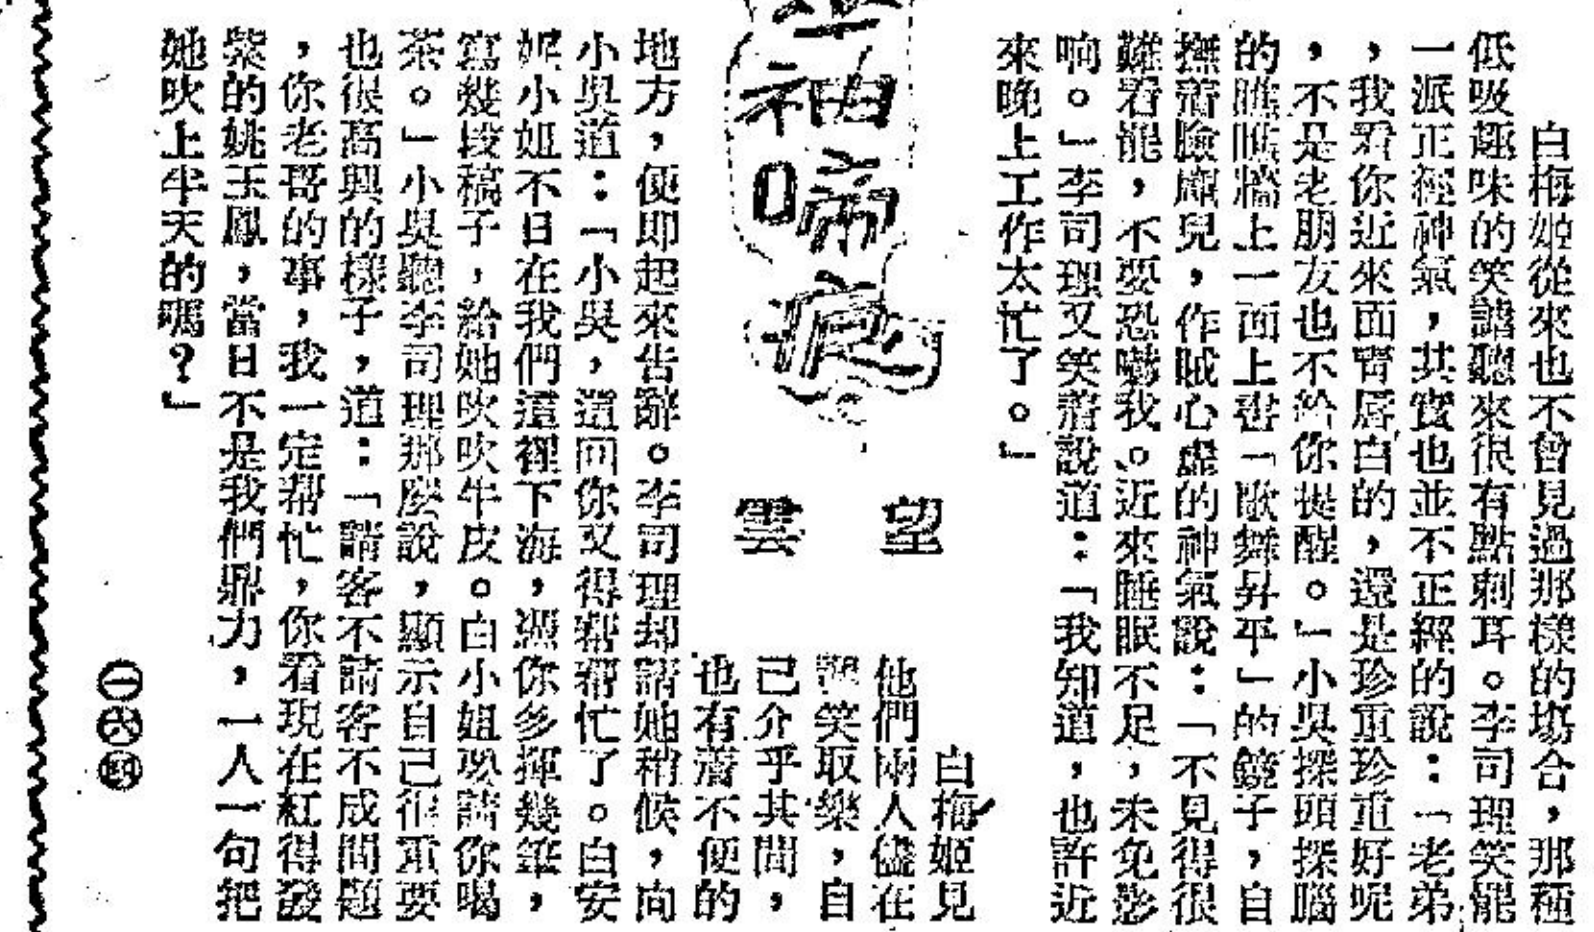 白梅姬從來也不曾見過那樣的塲合，那種
低吸趣味的笑謔聽來很有點刺耳。李司理笑罷
一派正經神氣，其實也並不正經的說：「老弟
，我看你近來面青唇白的，還是珍重珍重好呢
，不是老朋友也不給你提醒。」小吳探頭探腦
的瞧瞧牆上一面上書「歌舞昇平」的鏡子，自
撫着臉龐兒，作賊心虛的神氣說：「不見得很
難看罷，不要恐嚇我。近來睡眠不足，未免影
响。」李司理又笑着說道：「我知道，也許近
來晚上工作太忙了。」
袖啼痕
望雲
白梅姬見
他們兩人儘在
笑取樂，自
己介乎其間，
也有着不便的
地方，便即起來告辭。李司理却請她稍候，向
小吳道：「小吳，這回你又得帮帮忙了。白安
妮小姐不日在我們這裡下海，憑你多揮幾筆，
寫幾段稿子，給她吹吹牛皮。白小姐改請你喝
茶。」小吳聽李司理那麽說，顯示自己很重要
也很高興的樣子，道：「請客不請客不成問題
，你老哥的事，我一定帮忙，你看現在紅得發
紫的姚玉鳳，當日不是我們鼎力，一人一句把
她吹上半天的嗎？」
一六四